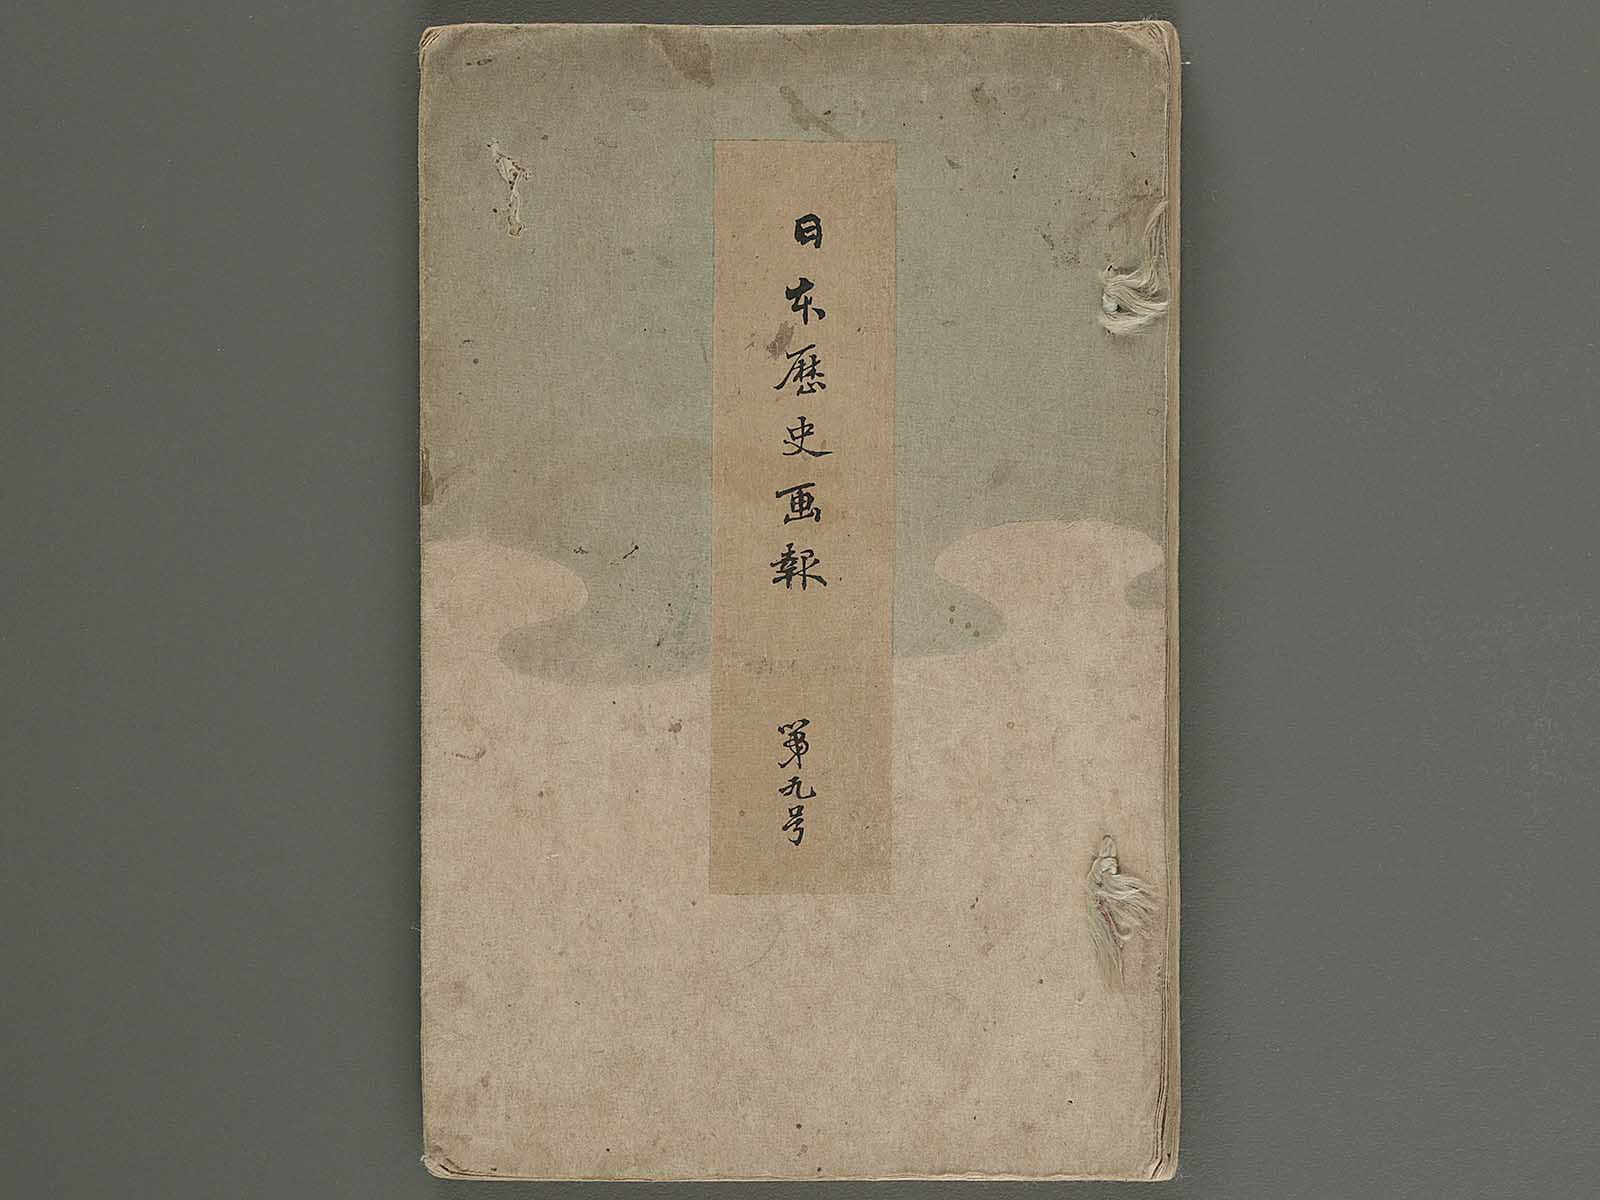 日本歴史画報
第九号